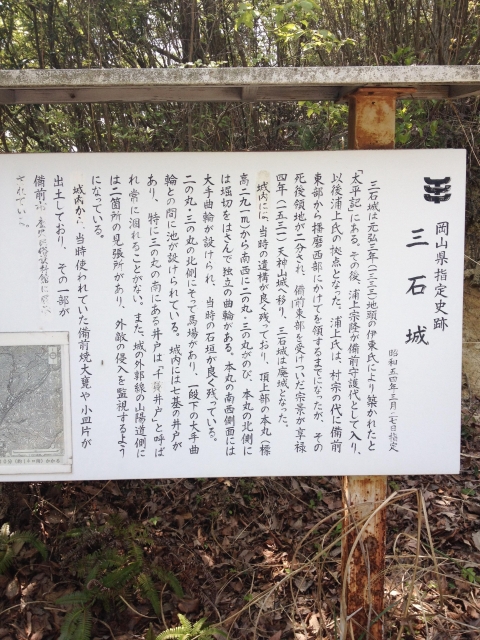 岡山県指定史跡
三石城
昭和五四年三月二七日指定
三石城は元弘三年(一三三三)地頭の伊東氏により築かれたと
「太平記」にある。その後、浦上宗隆が備前守護代として入り、
以後浦上氏の拠点となった。浦上氏は、村宗の代に備前
東部から播磨西部にかけてを領するまでになったが、その
死後領地が二分され、備前東部を受けついだ宗景が享禄
四年(一五三一)天神山城へ移り、三石城は廃城となった。
城内には、当時の遺構が良く残っており、頂上部の本丸(標
高二九一m)から南西に二の丸・三の丸がのび、本丸の北側に
は堀切をはさんで独立の曲輪がある。本丸の南西側面には
大手曲輪が設けられ、当時の石垣が良く残っている。
二の丸・三の丸の北側にそって馬場があり、一段下の大手曲
輪との間に池が設けられている。城内には七基の井戸が
あり、特に三の丸の南にある井戸は「千貫井戸」と呼ば
れ常に涸れることがない。また、城の外郭線の山陽道側に
は二箇所の見張所があり、外敵の侵入を監視するよう
になっている。
城内から、当時使われていた備前焼大甕や小皿片が
出土しており、その一部が
備前
されている。